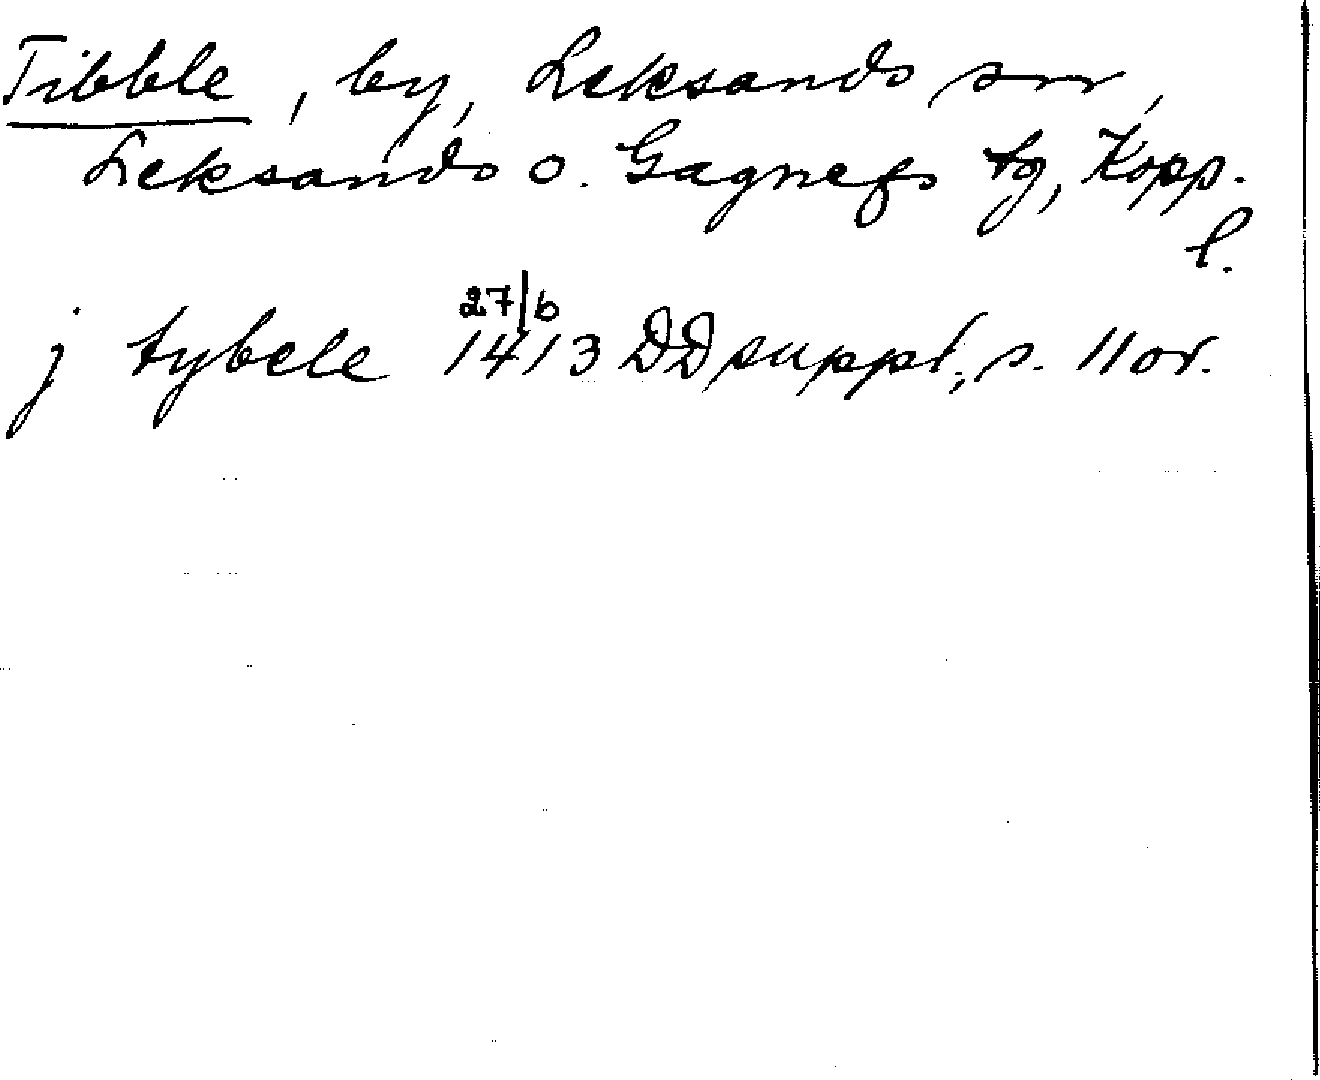 Tibble, by, Leksands sn,
Leksands o. Gagnefs tg, Kopp.
l.
27/6
j tybele 1413 DD suppl., s. 11 or.